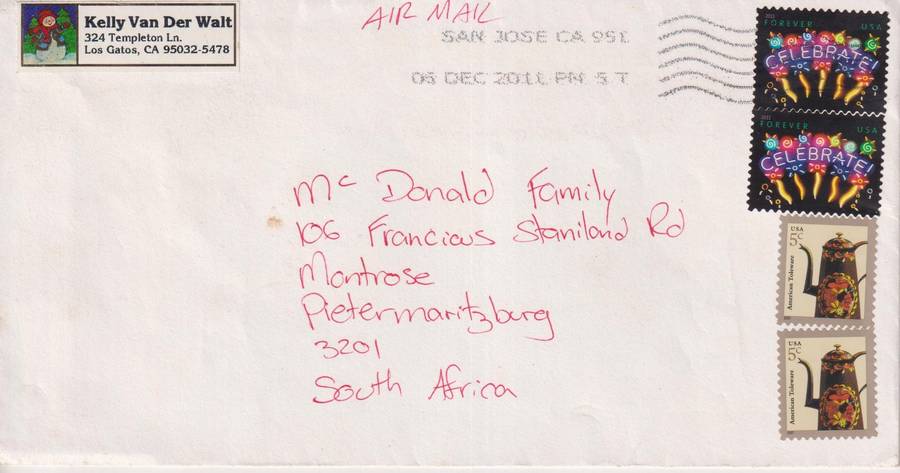 Kelly Van Der Walt
324 Templeton Ln.
Los Gatos, CA 95032-5478
AIR MAIL
SAN JOSE CA 951
05 DEC 2011 PM 5 T
2011 FOREVER USA
CELEBRATE!
2011 FOREVER USA
CELEBRATE!
Mc Donald Family
106 Francious Staniland Rd
Montrose
Pietermaritzburg
3201
South Africa
USA
5c
American Toleware
USA
5c
American Toleware